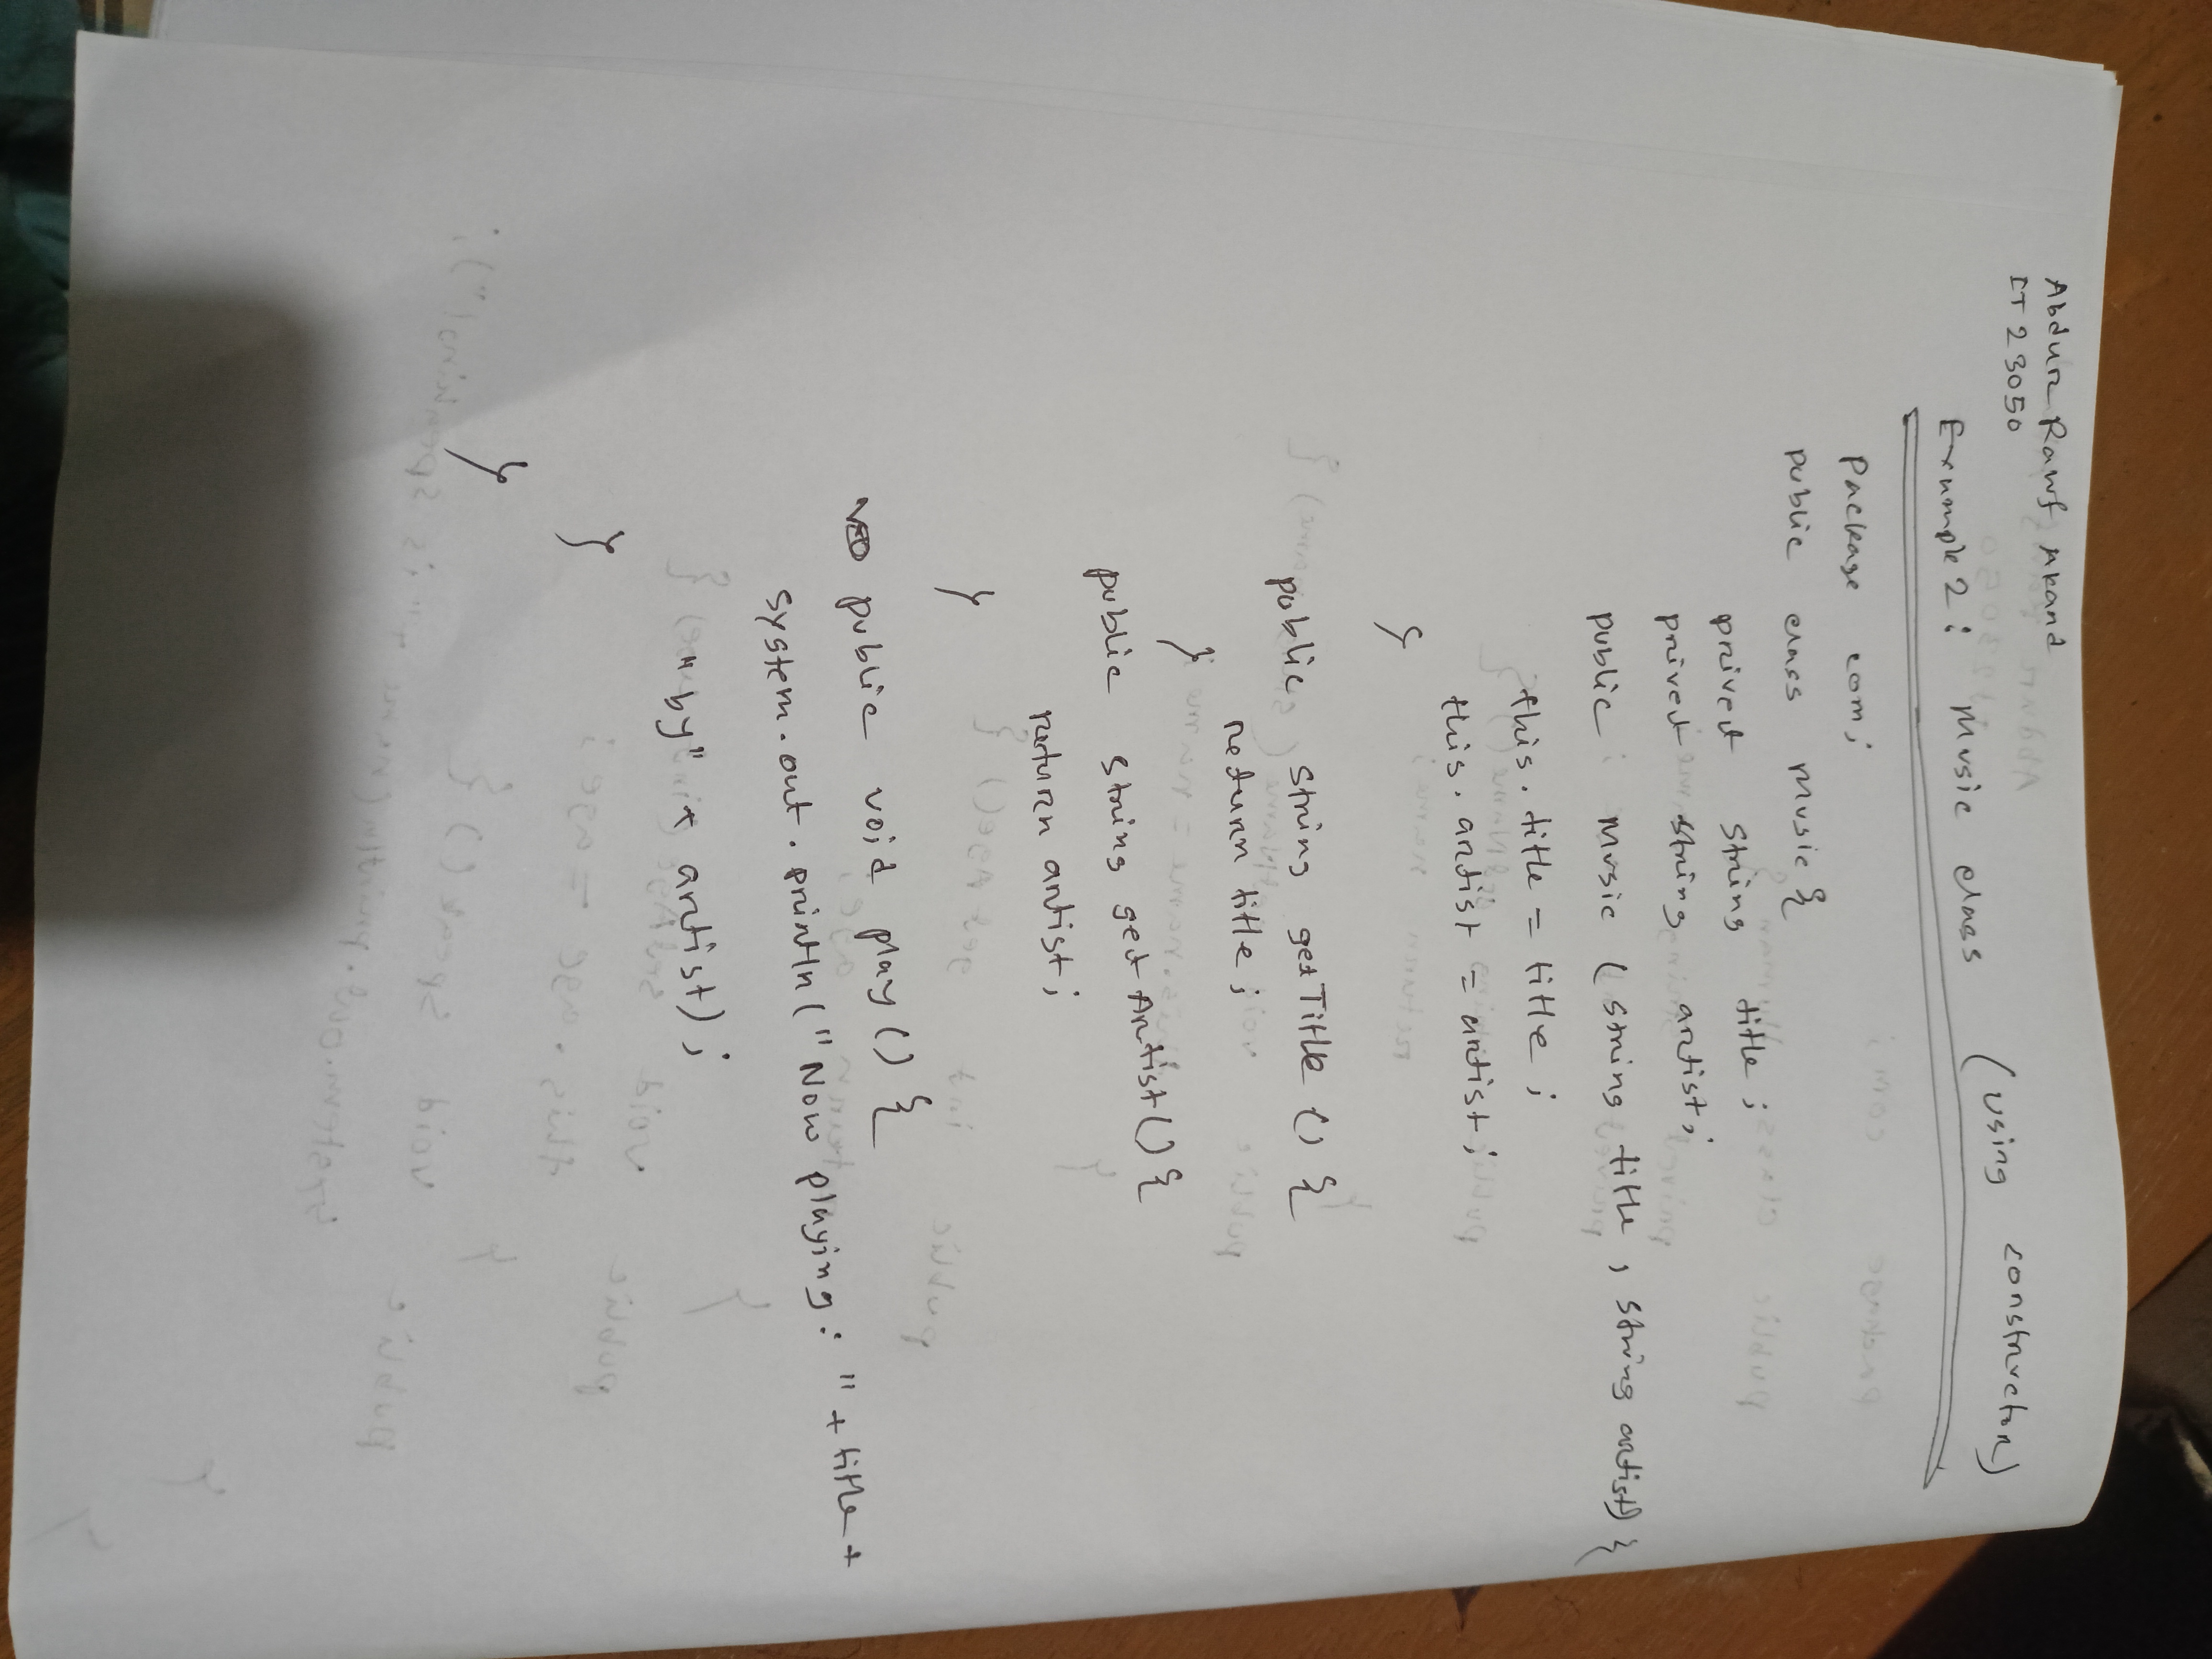 Abdur Rauf Akand
IT 23050
Example 2 : Music class (using constructor)
Package com;
public class Music {
privet String title ;
privet String artist;
public Music ( String title , String artist) {
this. title = title ;
this. artist = artist;
}
public String getTitle () {
return title ;
}
public String getArtist() {
return artist;
}
public void play () {
System.out.println("Now playing: " + title +
"by" + artist) ;
}
}